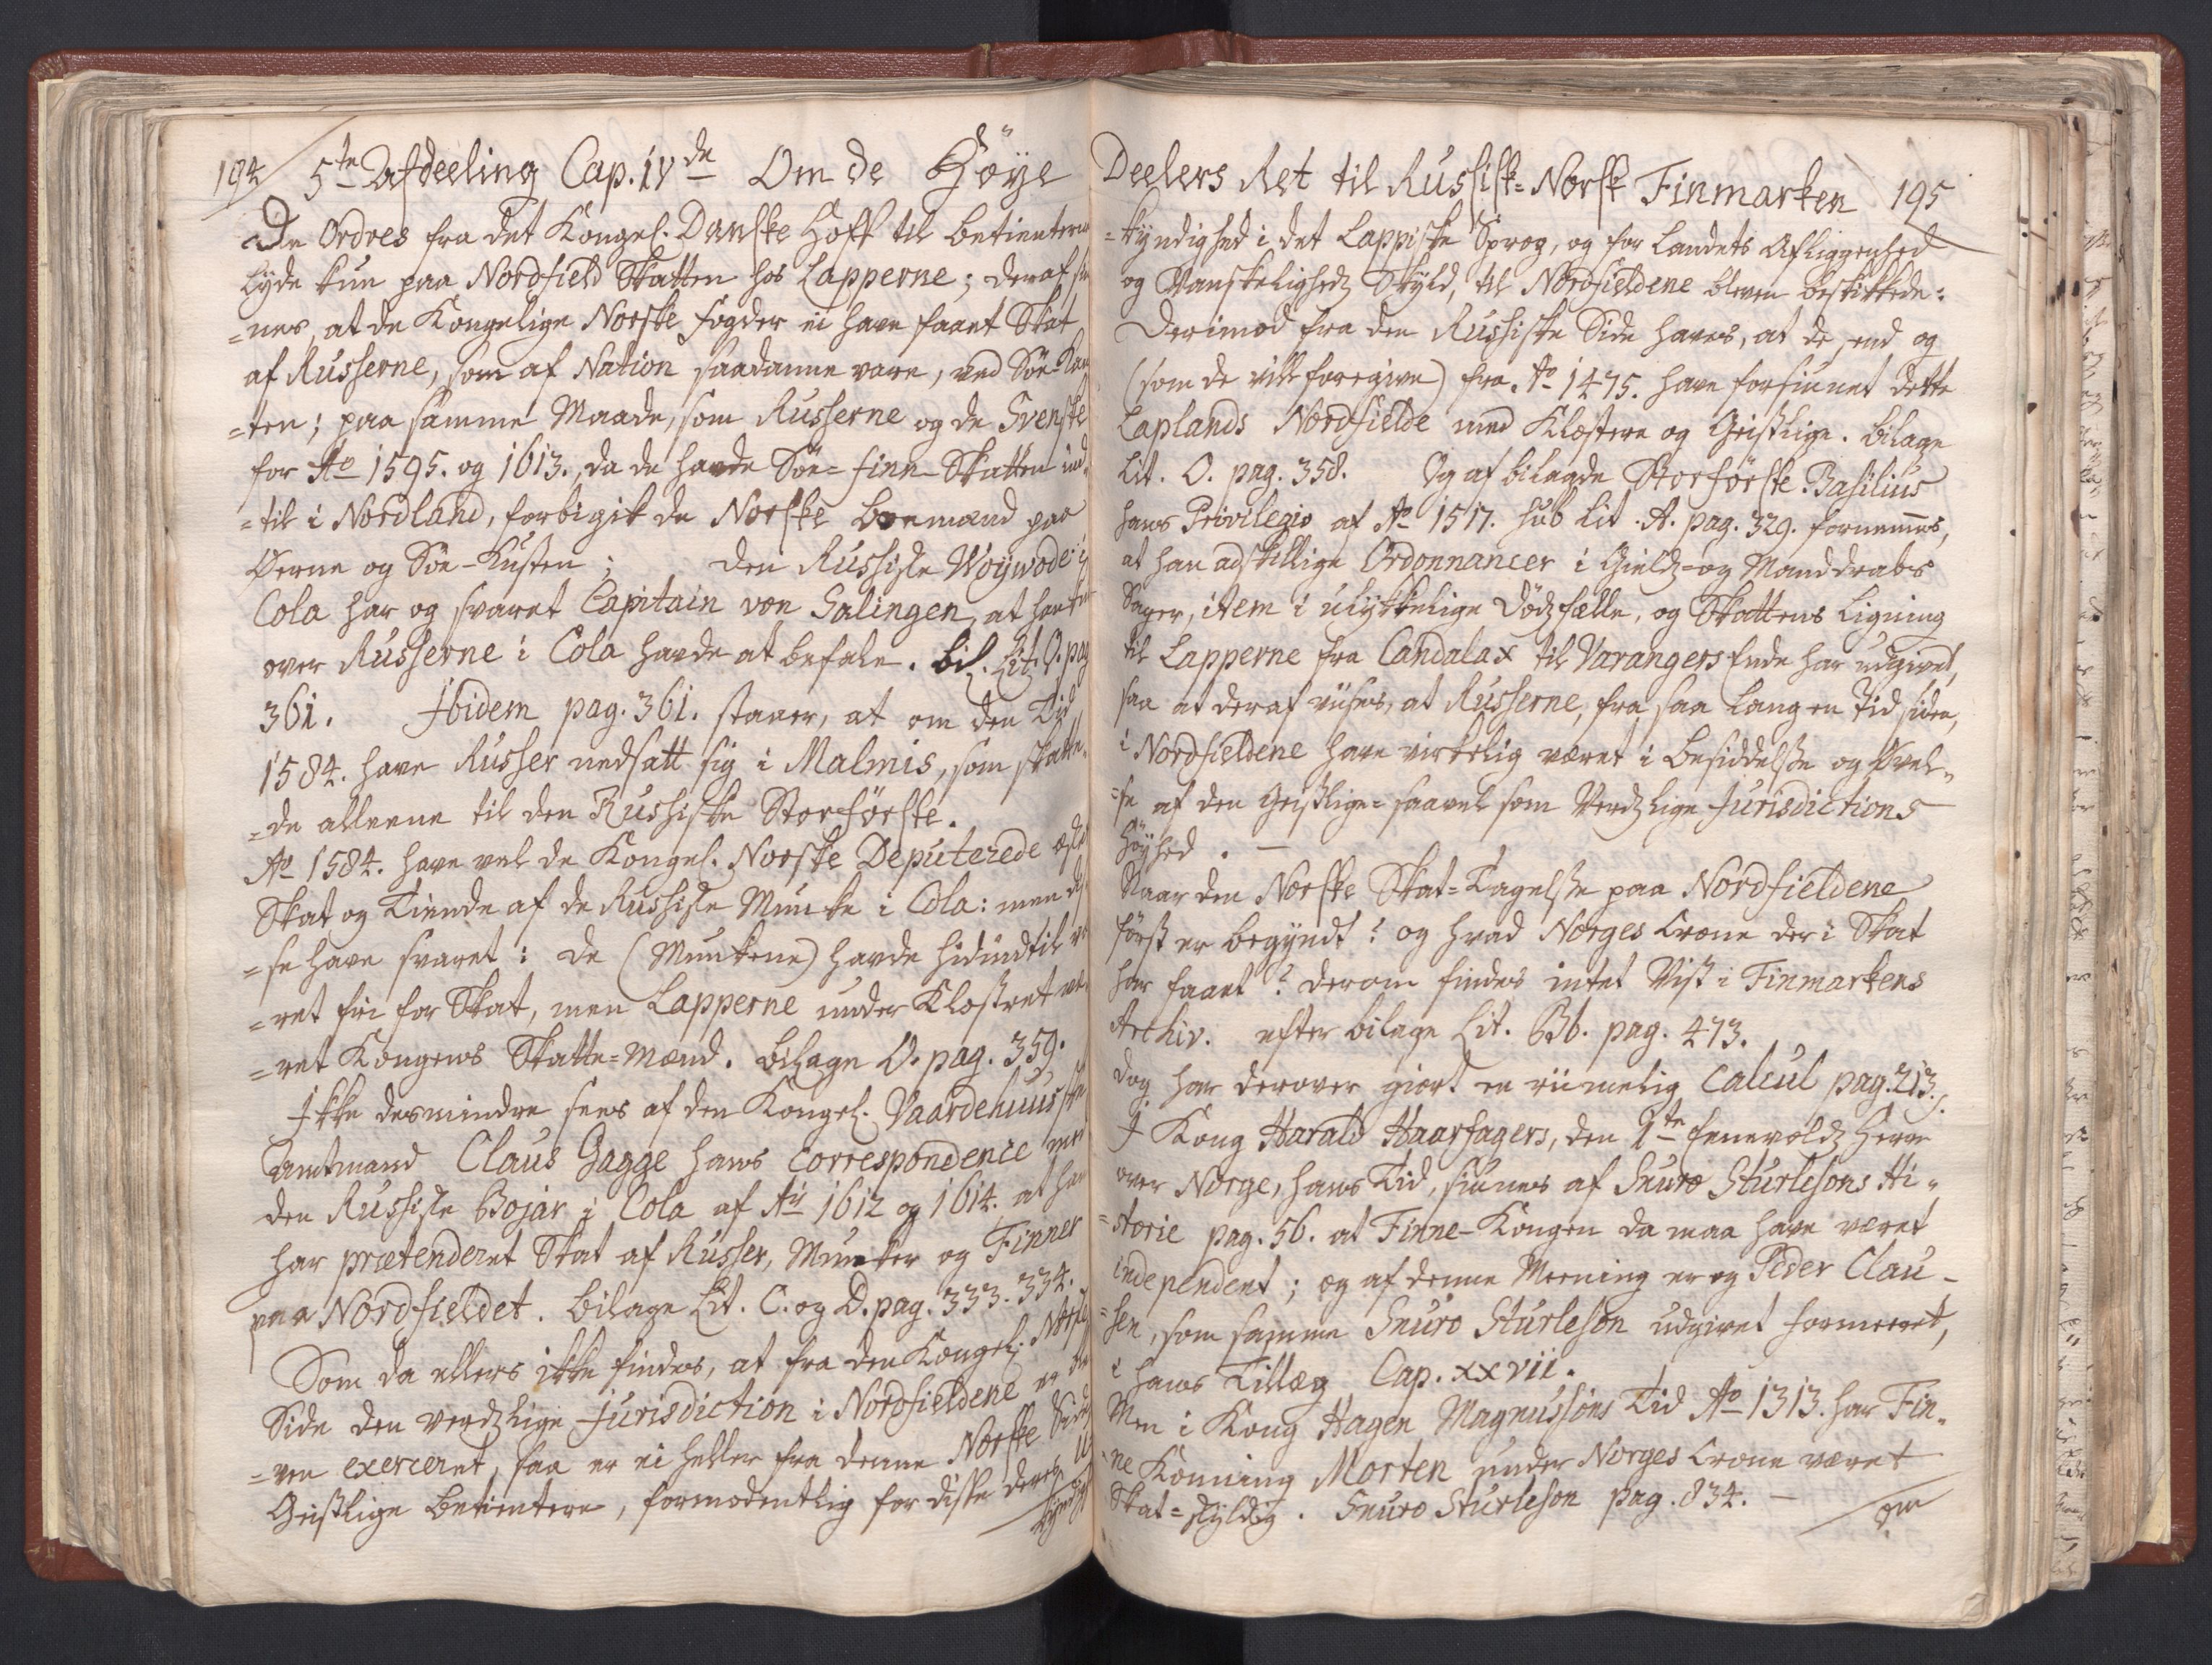 194 5te Afdeeling Cap. IVde Om de Høye
De Ordres fra det Kongel. Danske Hoff til betienterne
lyde kun paa Nordfield Skatten hos Lapperne; deraf sy
=nes, at de Kongelige Norske fogder ei have faaet Skat
af Russerne, som af Nation saadanne vare, ved Søe-Kan
=ten; paa samme Maade, som Russerne og de Svenske
for Ao 1595. og 1613., da de havde Søe-finn-Skatten ind-
=til i Nordland, forbigik de Norske boemænd paa
Øerne og Søe-Kusten; den Russiske Woywode i
Cola har og svaret Capitain von Salingen, at han
over Russerne i Cola havde at befale. bil. Lit. O. pag
361. Ibidem pag. 361. staaer, at om den Tid
1584. have Russer nedsatt sig i Malmis, som skatte-
=de alleene til den Russiske Storførste.
Ao 1584. have vel de Kongel. Norske Deputerede æsket
Skat og Tiende af de Russiske Munke i Cola: men dis
=se have svaret: de (Munkene) havde hidindtil væ
=ret fri for Skat, men Lapperne under Klostret væ
=ret Kongens Skatte=Mænd. bilage O. pag. 359.
Ikke desmindre sees af den Kongel. Vaardehuusske
Amtmand Claus Gagge hans Correspondence med
den Russiske Bojar i Cola af Ao 1612 og 1614. at han
har prætenderet Skat af Russer, Munker og Finner
paa Nordfieldet. bilage Lit. C. og D. pag. 333. 334.
Som da ellers ikke findes, at fra den Kongel. Norske
Side den verdslige Jurisdiction i Nordfieldene er ble
=ven exerceret, saa er ei heller fra denne Norske Side
Geistlige betientere, formodentlig for disse deres U
kyndig
Deelers Ret til Russisk=Norsk Finmarken 195
=kyndighed i det Lappiske Sprog, og for Landets Afliggenhed
og Vanskeligheds Skyld, til Nordfieldene bleven beskikkede:
Derimod fra den Russiske Side haves, at de, end og
(som de vill foregive) fra Ao 1475. have forsiunet dette
Laplands Nordfielde med Klostere og Geistlige. bilage
Lit. O. pag. 358. Og af bilagde Storførste Basilius
hans Privilegio af Ao 1517. sub Lit. A. pag. 329. fornemmes,
at han adskillige Ordonnancer i Gields=og Manddrabs
Sager, item i ulykkelige Dødsfælle, og Skattens Ligning
til Lapperne fra Candalax til Varangers Ende har udgivet,
saa at deraf viises, at Russerne, fra saa lang en Tid siden,
i Nordfieldene have virkelig været i besiddelse og Øvel-
=se af den Geistlige= saavel som Verdslige Jurisdictions
Høyhed. —
Naar den Norske Skat=Tagelse paa Nordfieldene
først er begyndt? og hvad Norges Crone der i Skat
har faaet? derom findes intet Vist i Finmarkens
Archiv. efter bilage Lit. Bb. pag. 473.
dog har derover giort en riimelig Calcul pag. 213.
I Kong Harald Haarfagers, den 1te Eenevolds Herre
over Norge, hans Tid, siunes af Snuro Sturlesons Hi-
=storie pag. 56. at Finne-Kongen da maa have været
independent; og af denne Meening er og Peder Clau-
=sen, som samme Snuro Sturleson udgivet
i hans Tillæg Cap. XXVII.
Men i Kong Hagen Magnussøns Tid Ao 1313. har Fin-
=ne Konning Morten under Norges Crone været
Skat=skyldig. Snuro Sturleson pag. 834. —